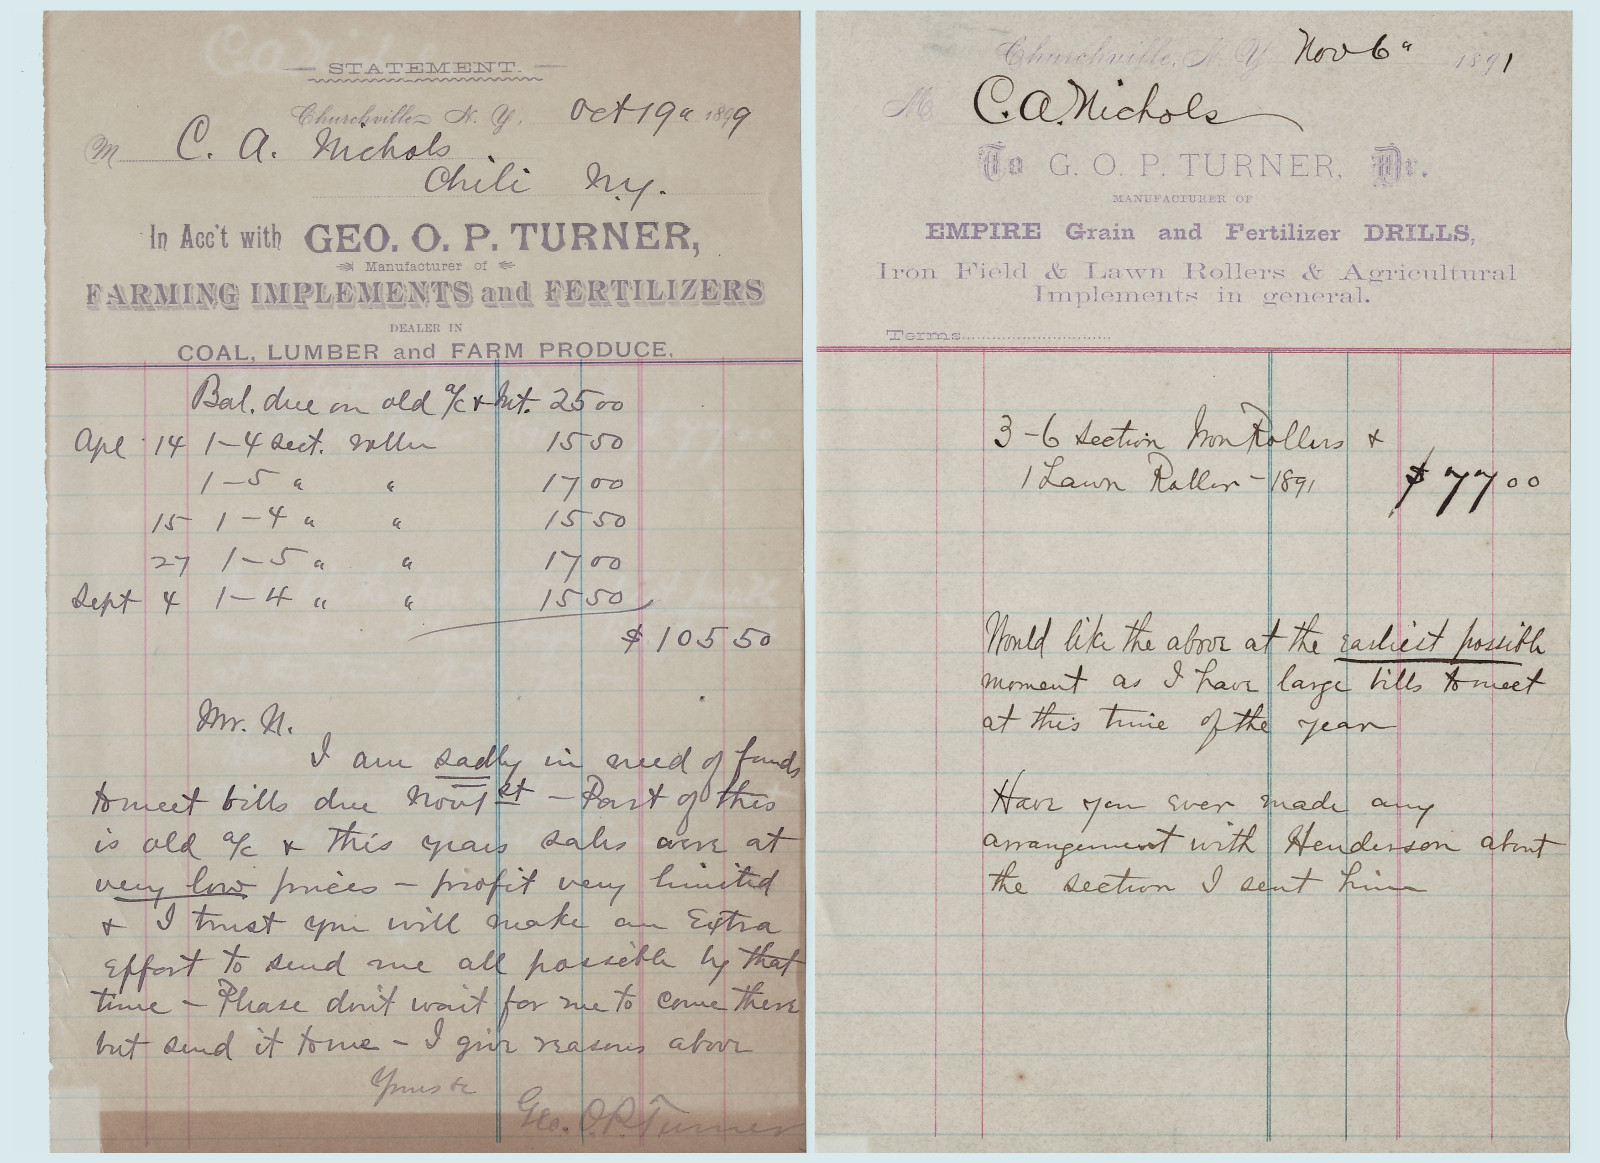 STATEMENT.
Churchville N. Y. Oct 19" 1899
M C. A. Nichols
Chili N.Y.
In Acc't with GEO. O. P. TURNER,
Manufacturer of
FARMING IMPLEMENTS and FERTILIZERS
DEALER IN
COAL, LUMBER and FARM PRODUCE.
Bal. due on old a/c & Int. 25 00
Apl 14 1-4 sect. roller 15 50
1-5 " " 17 00
15 1-4 " " 15 50
27 1-5 " " 17 00
Sept 4 1-4 " " 15 50
$ 105 50
Mr. N.
I am sadly in need of funds
to meet bills due Nov 1st - Part of this
is old a/c & this years sales were at
very low prices - profit very limited
& I trust you will make an Extra
effort to send me all possible by that
time - Please don't wait for me to come there
but send it to me - I give reasons above
Yours &c
Geo. O. P. Turner
Churchville, N. Y. Nov 6" 1891
M C. A. Nichols
To G. O. P. TURNER, Dr.
MANUFACTURER OF
EMPIRE Grain and Fertilizer DRILLS,
Iron Field & Lawn Rollers & Agricultural
Implements in general.
Terms
3-6 section Iron Rollers &
1 Lawn Roller - 1891 $ 77 00
Would like the above at the earliest possible
moment as I have large bills to meet
at this time of the year
Have you ever made any
arrangement with Henderson about
the section I sent him